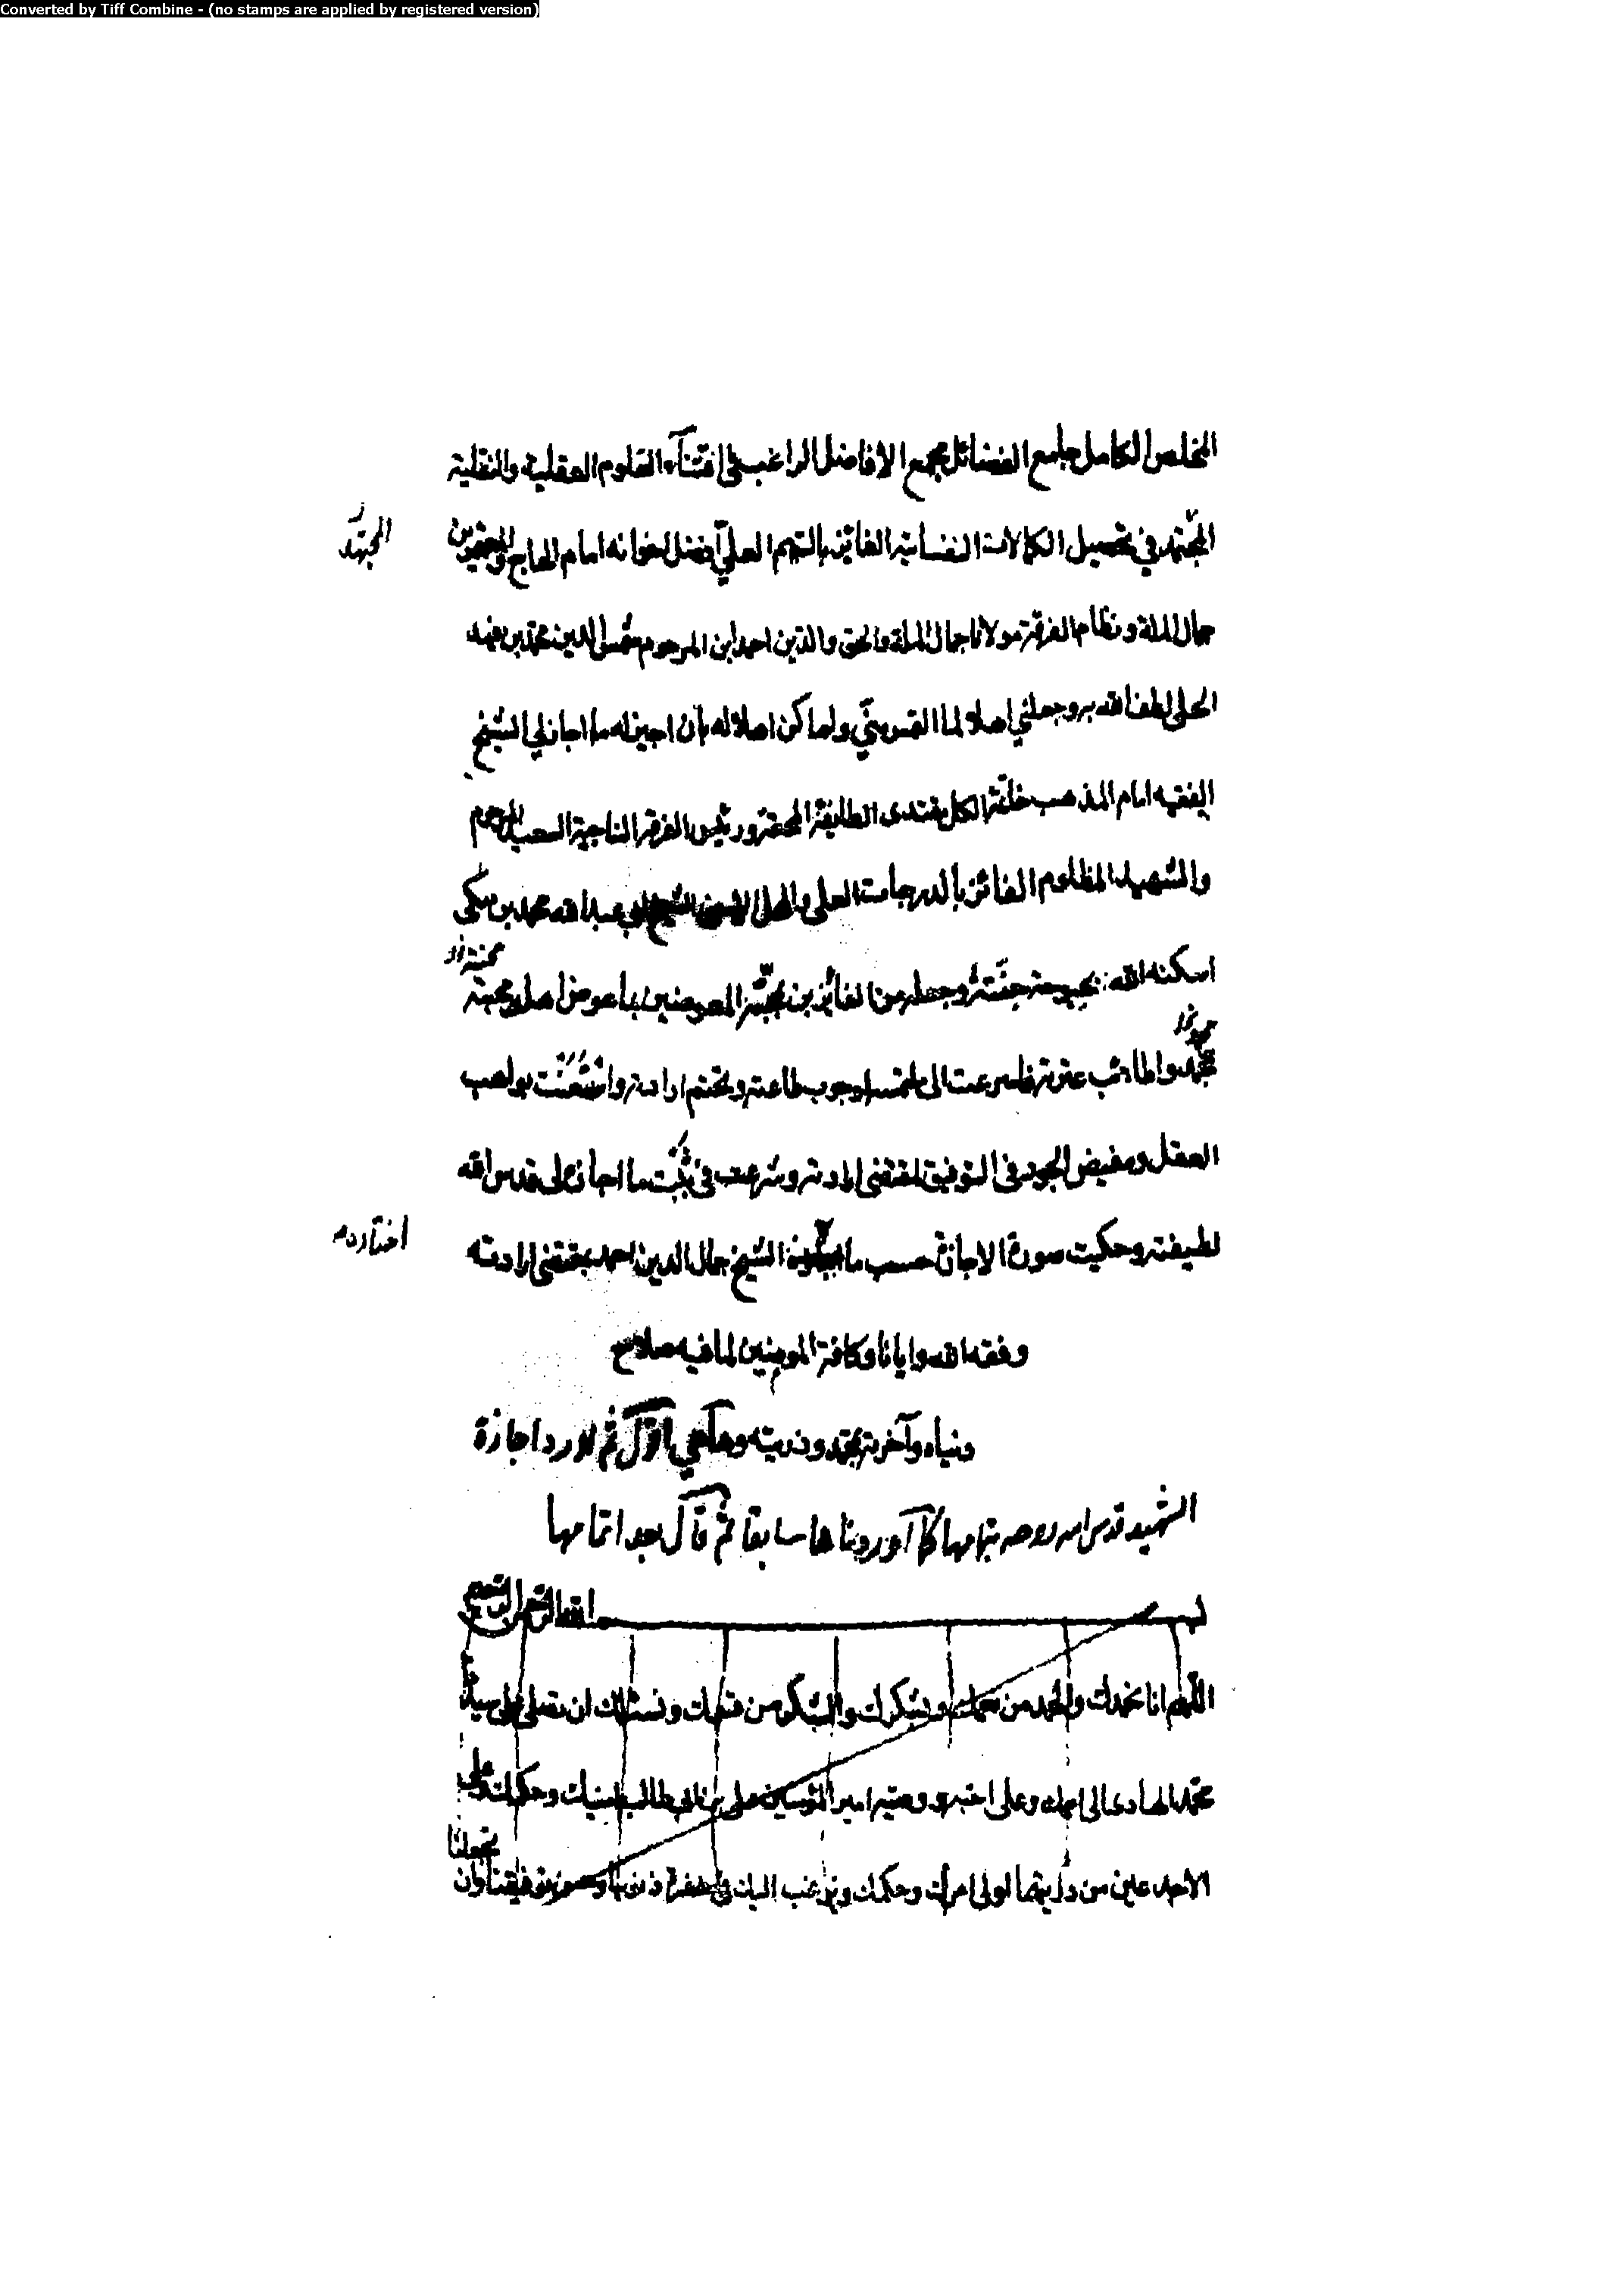 Converted by Tiff Combine - (no stamps are applied by registered version)
المخلص الكامل جامع الفضائل مجمع الافاضل الراغب في اقتنآء العلوم العقلية والنقلية
المجتهد في تحصيل الكمالات النفسانية الفائز بالسهم العلي افضل اخوانه امام الحاج والمعتمرين
المجتهد
جمال الملة ونظام الفرقة مولانا جمال الملة والحق والدين احمد ابن المرحوم شمس الدين محمد بن
الحلى لطف الله به وجعلني اهلا لما التمس مني ولما كان اهلا له بان اجيز له ما اجاز لي الشيخ
الفقيه امام المذهب خاتمة الكل مقتدى الطايفة المحقة ورئيس الفرقة الناجية السعيد المرحوم
والشهيد المظلوم الفائز بالدرجات العلى والمحل الاسنى الشيخ ابو عبد الله محمد بن مكى
اسكنه الله بحبوحة جنته وجعله من الفائزين المعوضين باعواض اهل محبته
بمحمد واطائب عترته فاسرعت الى ملتمسه لوجوب طاعته وتحتم ارادته واستعنت بواهب
العقل ومفيض الجود في التوفيق لمقتضى ارادته وشرعت في ثبت ما اجاز لى قدس الله
لطيفته وحكيت صورة الاجازة حسب ما الشيخ جمال الدين احمد بمقتضى ارادته
اختاره
وفقه الله وايانا وكافة المومنين لما فيه صلاح
دنياه وآخرته بمحمد وذريته وها هي اقول ثم اورد اجازة
الشهيد قدس الله روحه بتمامها كما اوردناها سابقا ثم قال بعد اتمامها
بسم الله الرحمن الرحيم
اللهم انا نحمدك والحمد من نعمك ونشكرك والشكر من قسمك ونسئلك ان تصلى على سيدنا
محمد الهادى الى وعلى اخيه ووصيه امير المؤمنين على بن ابى طالب امينك وحكمك على
الاحمدعين من ولى امرك وحكمك ونرغب اليك في مغفرة ذنوبنا توفيقنا وان
تجعلنا